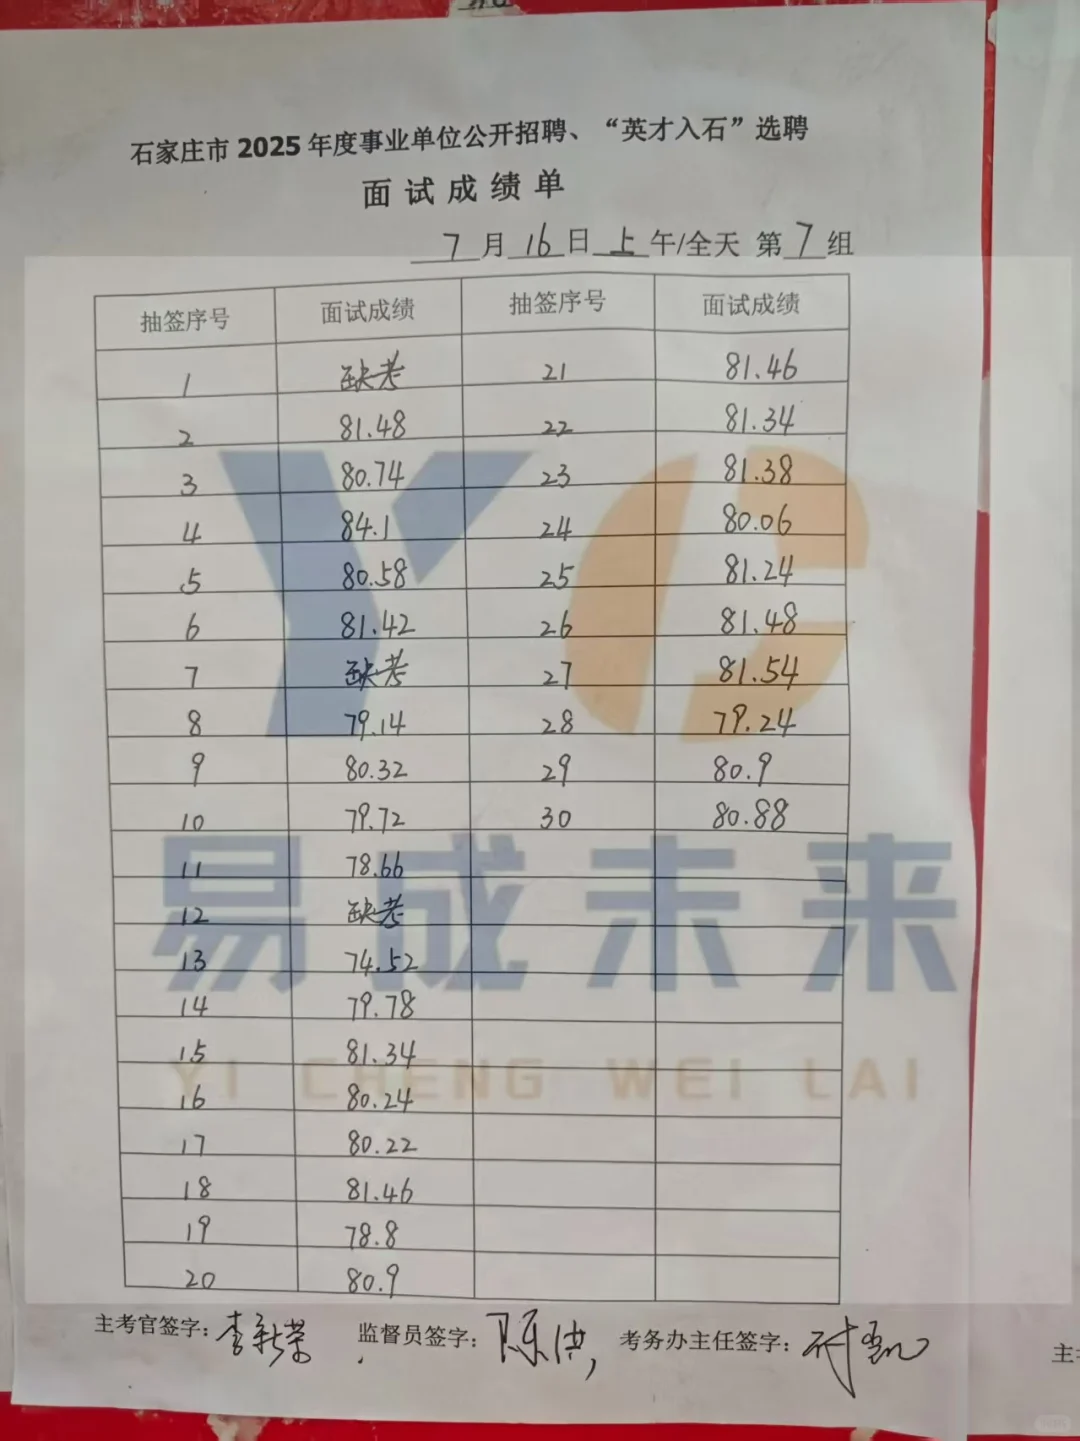 石家庄市 2025 年度事业单位公开招聘、“英才入石”选聘
面试成绩单
7月16日上午/全天 第7组
抽签序号 面试成绩 抽签序号 面试成绩
1 缺考 21 81.46
2 81.48 22 81.34
3 80.74 23 81.38
4 84.1 24 80.06
5 80.58 25 81.24
6 81.42 26 81.48
7 缺考 27 81.54
8 79.14 28 79.24
9 80.32 29 80.9
10 79.72 30 80.88
11 78.66
12 缺考
13 74.52
14 79.78
15 81.34
16 80.24
17 80.22
18 81.46
19 78.8
20 80.9
易成未来
YI CHENG WEI LAI
主考官签字：李新荣 监督员签字： 考务办主任签字：
主